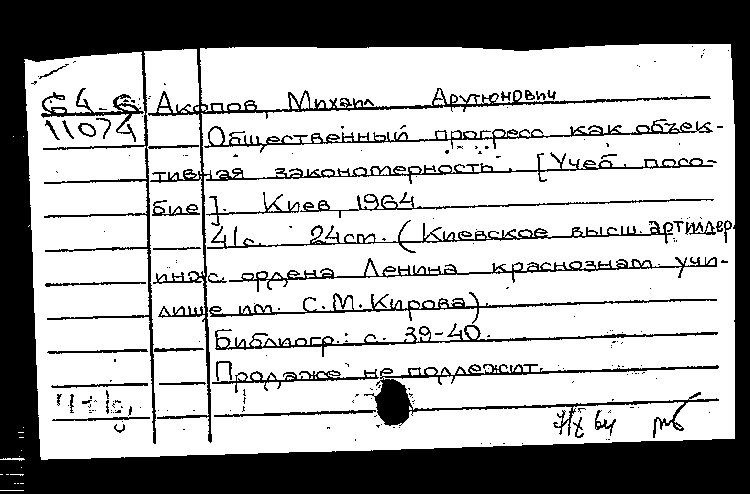 64-6 Акопов, Михаил Арутюнович
11074 Общественный прогресс как объек-
тивная закономерность. [Учеб. посо-
бие]. Киев, 1964.
41с. 24см. (Киевское высш. артиллер.
инж. ордена Ленина краснознам. учи-
лище им. С.М. Кирова).
Библиогр.: с. 39-40.
Продаже не подлежит.